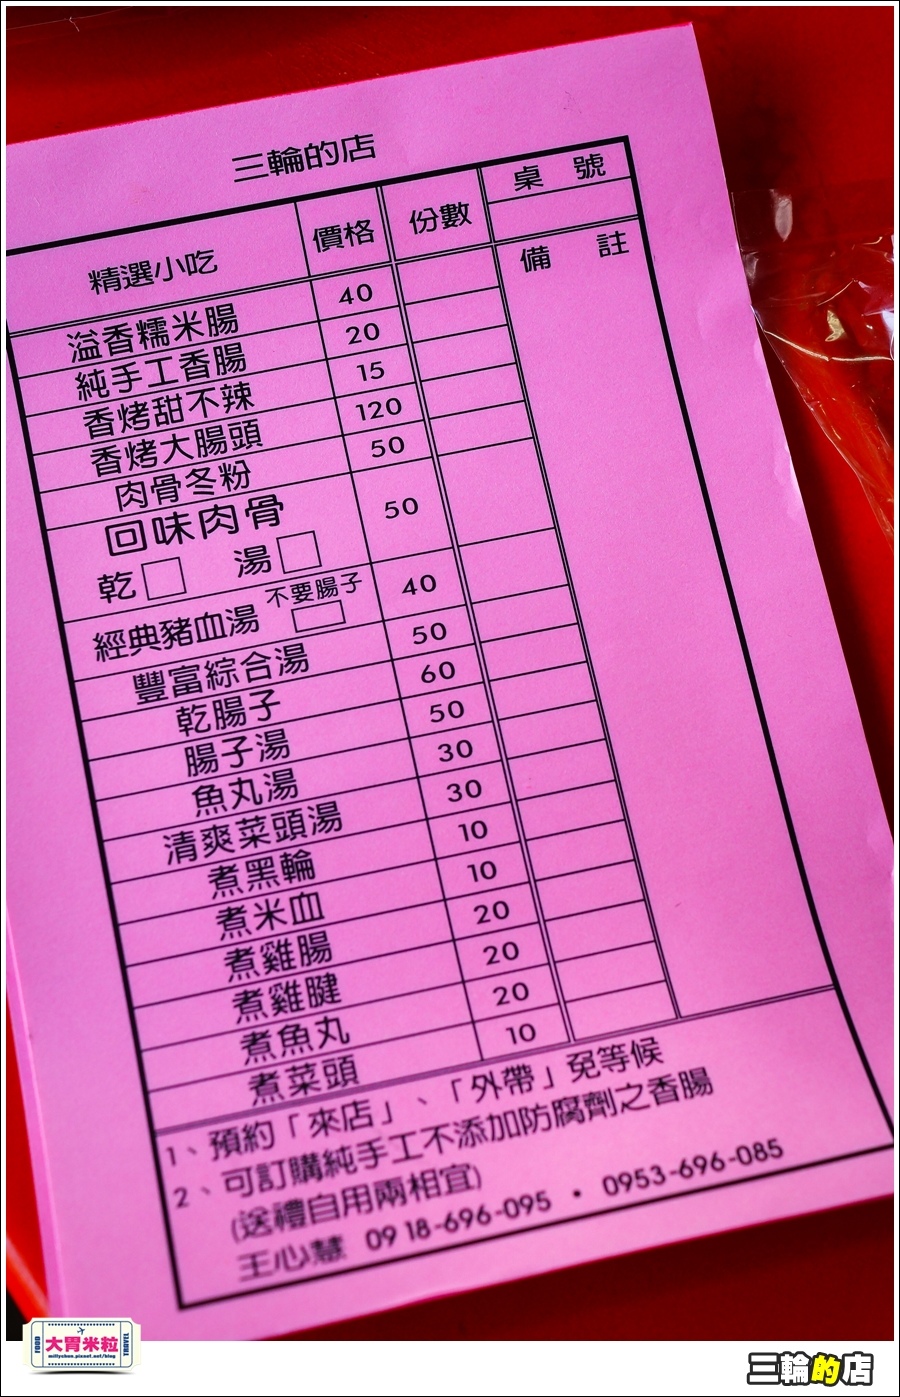 三輪的店
精選小吃 價格 份數 桌號
備註
溢香糯米腸 40
純手工香腸 20
香烤甜不辣 15
香烤大腸頭 120
肉骨冬粉 50
回味肉骨 50
乾 湯
經典豬血湯 不要腸子 40
豐富綜合湯 50
乾腸子 60
腸子湯 50
魚丸湯 30
清爽菜頭湯 30
煮黑輪 10
煮米血 10
煮雞腸 20
煮雞腱 20
煮魚丸 20
煮菜頭 10
1、預約「來店」、「外帶」免等候
2、可訂購純手工不添加防腐劑之香腸
(送禮自用兩相宜)
王心慧 0918-696-095 · 0953-696-085
FOOD 大胃米粒 TRAVEL
millychun.pixnet.net/blog
三輪的店